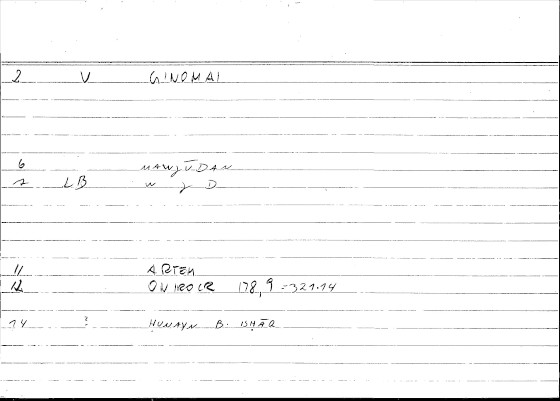 2 V GINOMAI
6 MAWǧŪDAN
7 LB W ǧ D
11 ARTEM
12 ONIROCR 178,9 = 321.14
14 ? ḤUNAYN B. ISḤĀQ